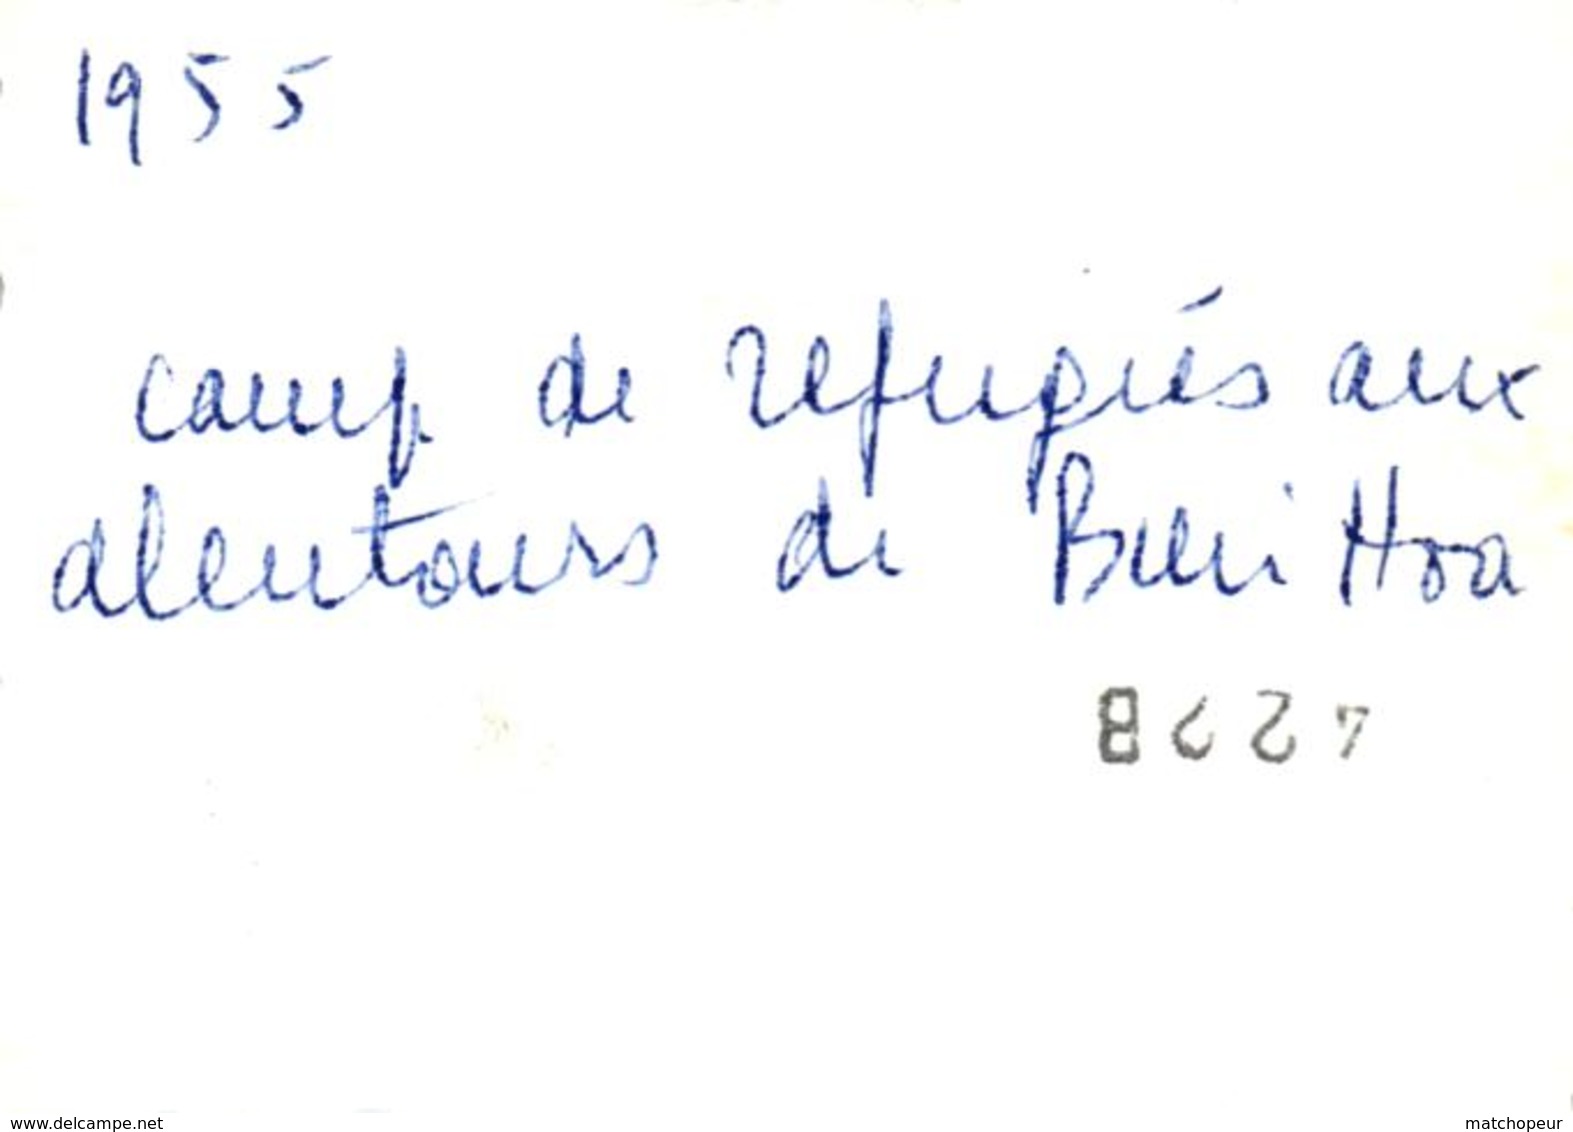 1955
camp de refugiés aux
alentours de Bien Hoa
www.delcampe.net
matchopeur